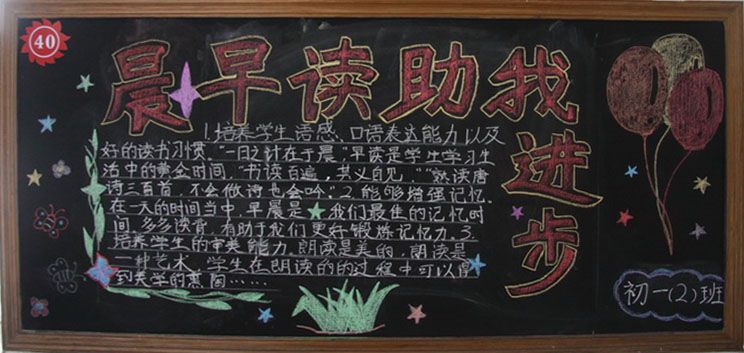 40
晨早读助我进步
1.培养学生语感、口语表达能力以及
好的读书习惯。"一日之计在于晨",早读是学生学习生
活中的黄金时间。"书读百遍,其义自见。""熟读唐
诗三百首,不会做诗也会吟"2.能够增强记忆。
在一天的时间当中,早晨是我们最佳的记忆时
间,多多读背,有助于我们更好锻炼记忆力。3.
培养学生的审美能力。朗读是美的,朗读是
一种艺术。学生在朗读的的过程中可以得
到美学的熏陶……
初一(2)班